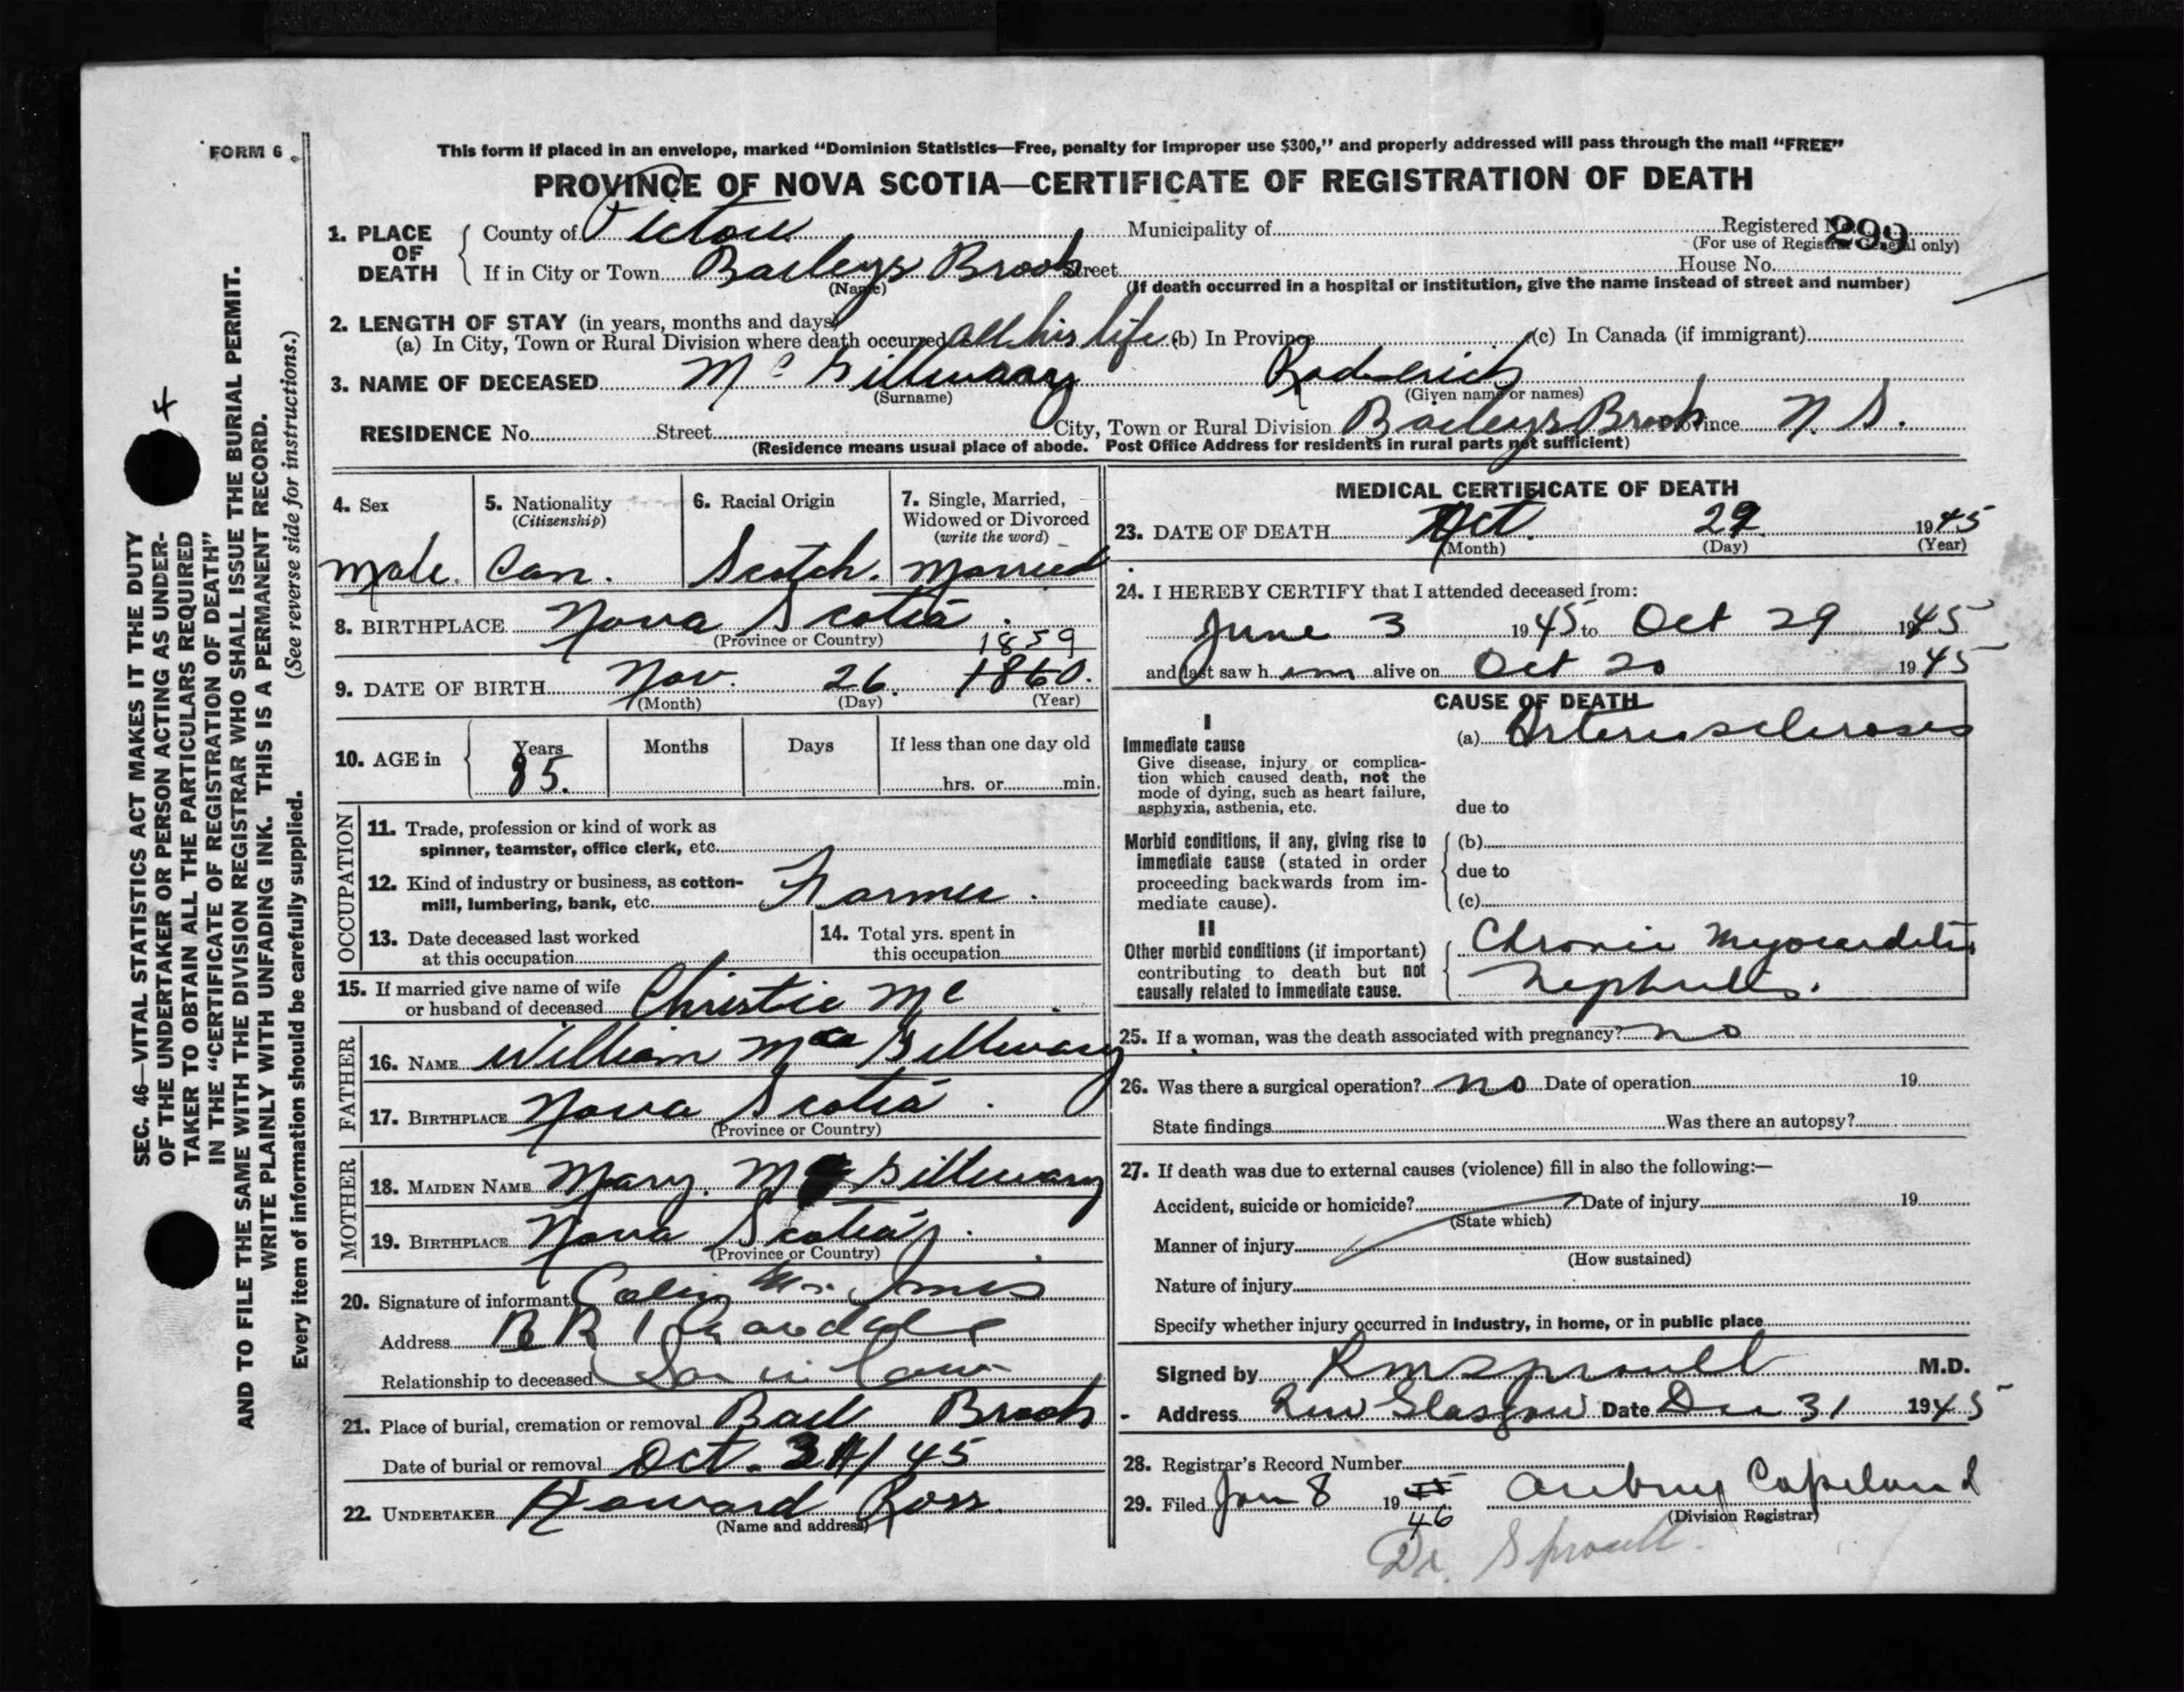 FORM 6
This form if placed in an envelope, marked "Dominion Statistics—Free, penalty for improper use $300," and properly addressed will pass through the mail "FREE"
PROVINCE OF NOVA SCOTIA—CERTIFICATE OF REGISTRATION OF DEATH
1. PLACE OF DEATH
County of Pictou Municipality of Registered No. 299
(For use of Registrar General only)
If in City or Town Baileys Brook Street House No.
(Name) (If death occurred in a hospital or institution, give the name instead of street and number)
2. LENGTH OF STAY (in years, months and days)
(a) In City, Town or Rural Division where death occurred all his life (b) In Province (c) In Canada (if immigrant)
3. NAME OF DECEASED Mc Gillivary Roderick
(Surname) (Given name or names)
RESIDENCE No. Street City, Town or Rural Division Baileys Brook Province N. S.
(Residence means usual place of abode. Post Office Address for residents in rural parts not sufficient)
4. Sex 5. Nationality (Citizenship) 6. Racial Origin 7. Single, Married, Widowed or Divorced (write the word)
Male. Can. Scotch. Married
8. BIRTHPLACE Nova Scotia.
(Province or Country)
1859
9. DATE OF BIRTH Nov. 26. 1860.
(Month) (Day) (Year)
10. AGE in Years Months Days If less than one day old
85. hrs. or min.
OCCUPATION
11. Trade, profession or kind of work as spinner, teamster, office clerk, etc.
12. Kind of industry or business, as cotton-mill, lumbering, bank, etc. Farmer.
13. Date deceased last worked at this occupation
14. Total yrs. spent in this occupation
15. If married give name of wife or husband of deceased Christie Mc
FATHER
16. NAME William Mac Gillivary
17. BIRTHPLACE Nova Scotia.
(Province or Country)
MOTHER
18. MAIDEN NAME Mary. Mc Gillivary
19. BIRTHPLACE Nova Scotia.
(Province or Country)
20. Signature of informant
Address R R 1
Relationship to deceased Son in law
21. Place of burial, cremation or removal Brook
Date of burial or removal Oct. 31/45
22. UNDERTAKER Howard Ross
(Name and address)
MEDICAL CERTIFICATE OF DEATH
23. DATE OF DEATH Oct. 29 1945
(Month) (Day) (Year)
24. I HEREBY CERTIFY that I attended deceased from:
June 3 1945 to Oct 29 1945
and last saw him alive on Oct 20 1945
CAUSE OF DEATH
I
Immediate cause
Give disease, injury or complication which caused death, not the mode of dying, such as heart failure, asphyxia, asthenia, etc.
(a) Arteriosclerosis
due to
Morbid conditions, if any, giving rise to immediate cause (stated in order proceeding backwards from immediate cause).
(b)
due to
(c)
II
Other morbid conditions (if important) contributing to death but not causally related to immediate cause.
Chronic Myocarditis
Nephritis.
25. If a woman, was the death associated with pregnancy? no
26. Was there a surgical operation? no Date of operation 19
State findings Was there an autopsy?
27. If death was due to external causes (violence) fill in also the following:—
Accident, suicide or homicide? Date of injury 19
(State which)
Manner of injury
(How sustained)
Nature of injury
Specify whether injury occurred in industry, in home, or in public place
Signed by R M Sproull M.D.
Address New Glasgow Date Dec 31 1945
28. Registrar's Record Number
29. Filed Jan 8 19 45 Aubrey Copeland
46 (Division Registrar)
Dr. Sproull.
SEC. 46—VITAL STATISTICS ACT MAKES IT THE DUTY
OF THE UNDERTAKER OR PERSON ACTING AS UNDER-
TAKER TO OBTAIN ALL THE PARTICULARS REQUIRED
IN THE "CERTIFICATE OF REGISTRATION OF DEATH"
AND TO FILE THE SAME WITH THE DIVISION REGISTRAR WHO SHALL ISSUE THE BURIAL PERMIT.
WRITE PLAINLY WITH UNFADING INK. THIS IS A PERMANENT RECORD.
Every item of information should be carefully supplied. (See reverse side for instructions.)
4